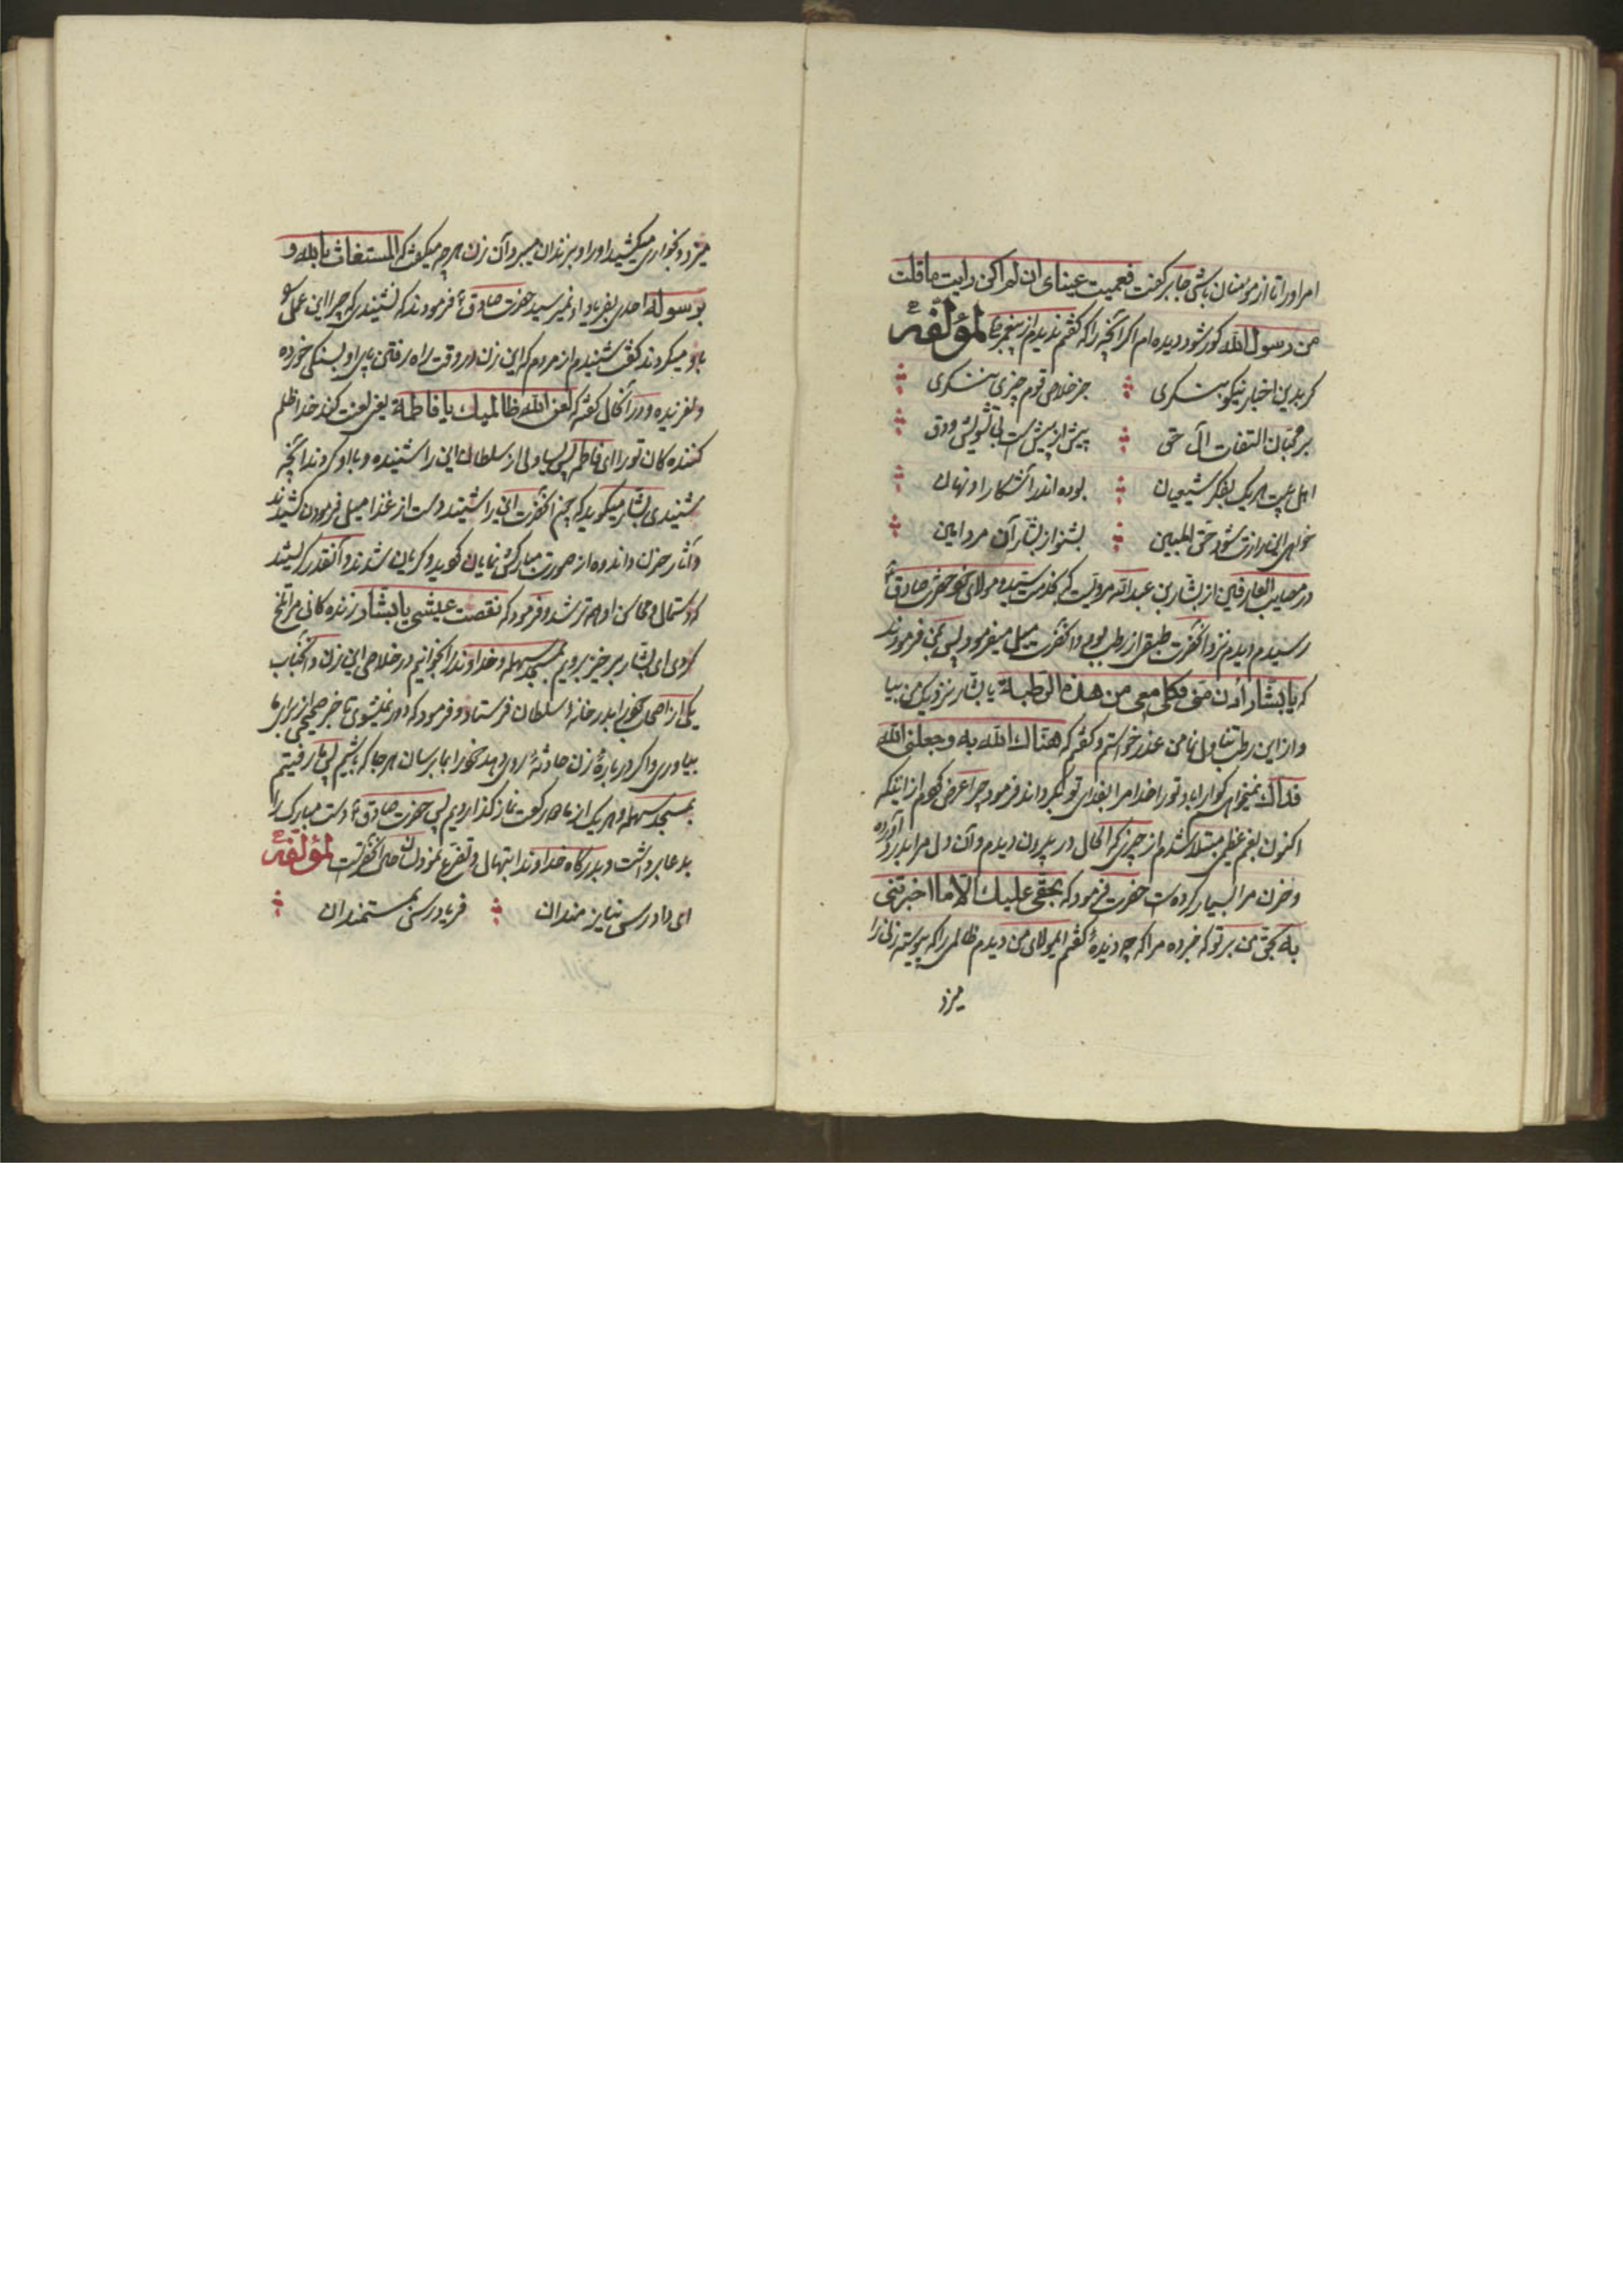 امر اورا تا از مومنان باشی جابر گفت فعمیت عینای ان لم اکن رایت ما قلت
من رسول الله کور شود دیده ام اگر آنچه را که گفتم ندیدم از پیغمبر لمؤلفه
گر بدین اخبار نیکو بنگری
جز خلاص قوم چیزی ننگری
بر محبان التفات آل حق
بیش از پیش است بی تشویش و دق
اهل بیت هر یک بفکر شیعیان
بوده اند آشکارا و نهان
خواهی این رازت شود حق المبین
بشنو از بشار آن مرد امین
در مصایب العارفین از بشار بن عبدالله مرویست که بخدمت سید و مولای خود حضرت صادق ع
رسیدم دیدم نزد آنحضرت طبقی از رطب بود و آنحضرت میل میفرمود پس بمن فرمودند
که یا بشار ادن منی فکل معی من هذه الرطبة یا بشار نزدیک من بیا
و از این رطب تناول نما من عذر خواستم و گفتم که هناك الله به وجعلنی الله
فداك نمیخواهم گوارا باد تو را خدا مرا بفدای تو بگرداند فرمود چرا عرض کردم از اینکه
اکنون بغم عظیم مبتلا شدم از چیزی که الحال در بیرون دیدم و آن دل مرا بدرد آورده
و حزن مرا بسیار کرده است حضرت فرمود که بحقی علیك الا ما اخبرتنی
به بحق من بر تو که خبر ده مرا که چه دیدهٔ گفتم ایمولای من دیدم ظالمی را که پیوسته زنی را
میزد
میزد و بخواری میکشید او را و بزندان میبرد آن زن هر چه میگفت که المستغاث بالله و
برسوله احدی بفریاد او نمیرسید حضرت صادق ع فرمودند که نشنیدی که چرا این عمل
باو میکردند گفت شنیدم از مردم که این زن در وقت راه رفتن پای او بسنگی خورده
و لغزیده و در آنحال گفته که لعن الله ظالمیك یا فاطمة یعنی لعنت کند خدا ظلم
کننده کان تو را ای فاطمه پس یساولی از سلطان این را شنیده و با او کردند آنچه
شنیدی بشار میگوید که چون آنحضرت این را شنیدند دست از غذا میل فرمودن کشیدند
و آثار حزن و اندوه از صورت مبارکش نمایان گردید و گریان شدند و آنقدر گریستند
که دستمال و محاسن او هم تر شد و فرمود که نقصت عیشی یا بشار زنده کانی مرا تلخ
کردی ای بشار برخیز برویم بمسجد سهله و خداوند را بخوانیم در خلاصی این زن و آنجناب
یکی از اصحاب خود را بدر خانه سلطان فرستاد و فرمود که دور نمیشوی تا خبر صحیحی از برای ما
بیاوری و اگر در بارهٔ زن حادثهٔ روی دهد خود را بما برسان هر جا که باشیم پس ما رفتیم
بمسجد سهله و هر یک از ما دو رکعت نماز گذاردیم پس حضرت صادق ع دست مبارک را
بدعا برداشت و بدرگاه خداوند ابتهال و تضرع نمود لسان حال آنحضرت لمؤلفه
ای دادرس نیازمندان
فریادرس مستمندان